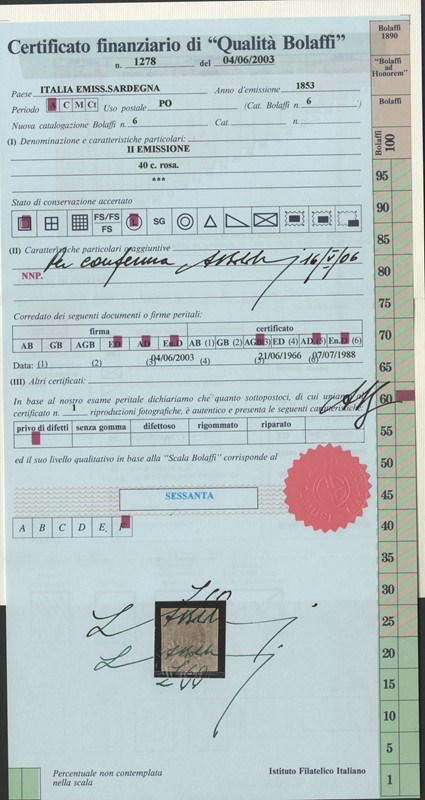 Certificato finanziario di “Qualità Bolaffi”
n. 1278 del 04/06/2003
Paese ITALIA EMISS.SARDEGNA Anno d'emissione 1853
Periodo A C M Ct Uso postale PO (Cat. Bolaffi n. 6 )
Nuova catalogazione Bolaffi n. 6 Cat. n.
(I) Denominazione e caratteristiche particolari:
II EMISSIONE
40 c. rosa.
***
Stato di conservazione accertato
FS/FS FS SG
(II) Caratteristiche particolari aggiuntive
NNP. Per conferma 16/V/06
Corredato dei seguenti documenti o firme peritali:
firma certificato
AB GB AGB ED AD En.D AB (1) GB (2) AGB(3) ED (4) AD (5) En.D (6)
Data: (1) (2) (3) 04/06/2003 (4) (5) 21/06/1966 (6) 07/07/1988
(III) Altri certificati:
In base al nostro esame peritale dichiariamo che quanto sottopostoci, di cui uniamo al
certificato n. 1 riproduzioni fotografiche, è autentico e presenta le seguenti caratteristiche:
privo di difetti senza gomma difettoso rigommato riparato
ed il suo livello qualitativo in base alla “Scala Bolaffi” corrisponde al
SESSANTA
A B C D E F
Percentuale non contemplata
nella scala
Istituto Filatelico Italiano
Bolaffi
1890
“Bolaffi
ad
Honorem”
Bolaffi
Bolaffi
100
95
90
85
80
75
70
65
60
55
50
45
40
35
30
25
20
15
10
5
1